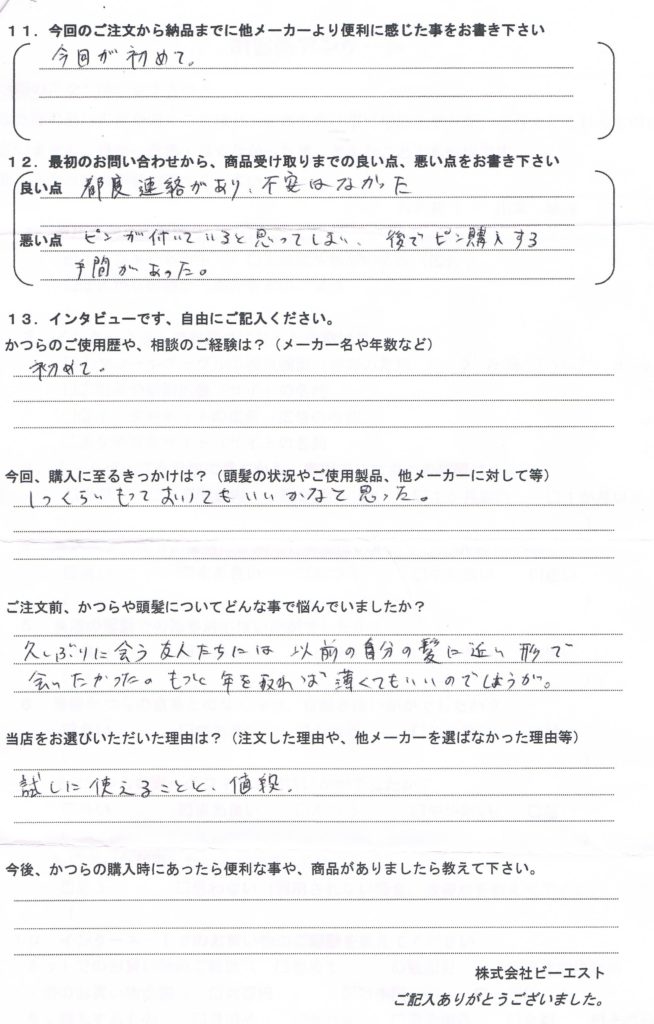 11．今回のご注文から納品までに他メーカーより便利に感じた事をお書き下さい
今回が初めて。
12．最初のお問い合わせから、商品受け取りまでの良い点、悪い点をお書き下さい
良い点 都度連絡があり、不安はなかった
悪い点 ピンが付いていると思ってしまい、後でピン購入する
手間があった。
13．インタビューです、自由にご記入ください。
かつらのご使用歴や、相談のご経験は？（メーカー名や年数など）
初めて。
今回、購入に至るきっかけは？（頭髪の状況やご使用製品、他メーカーに対して等）
1っくらいもっておいてもいいかなと思った。
ご注文前、かつらや頭髪についてどんな事で悩んでいましたか？
久しぶりに会う友人たちには以前の自分の髪に近い形で
会いたかった。もっと年を取れば薄くてもいいのでしょうが。
当店をお選びいただいた理由は？（注文した理由や、他メーカーを選ばなかった理由等）
試しに使えることと、値段。
今後、かつらの購入時にあったら便利な事や、商品がありましたら教えて下さい。
株式会社ビーエスト
ご記入ありがとうございました。